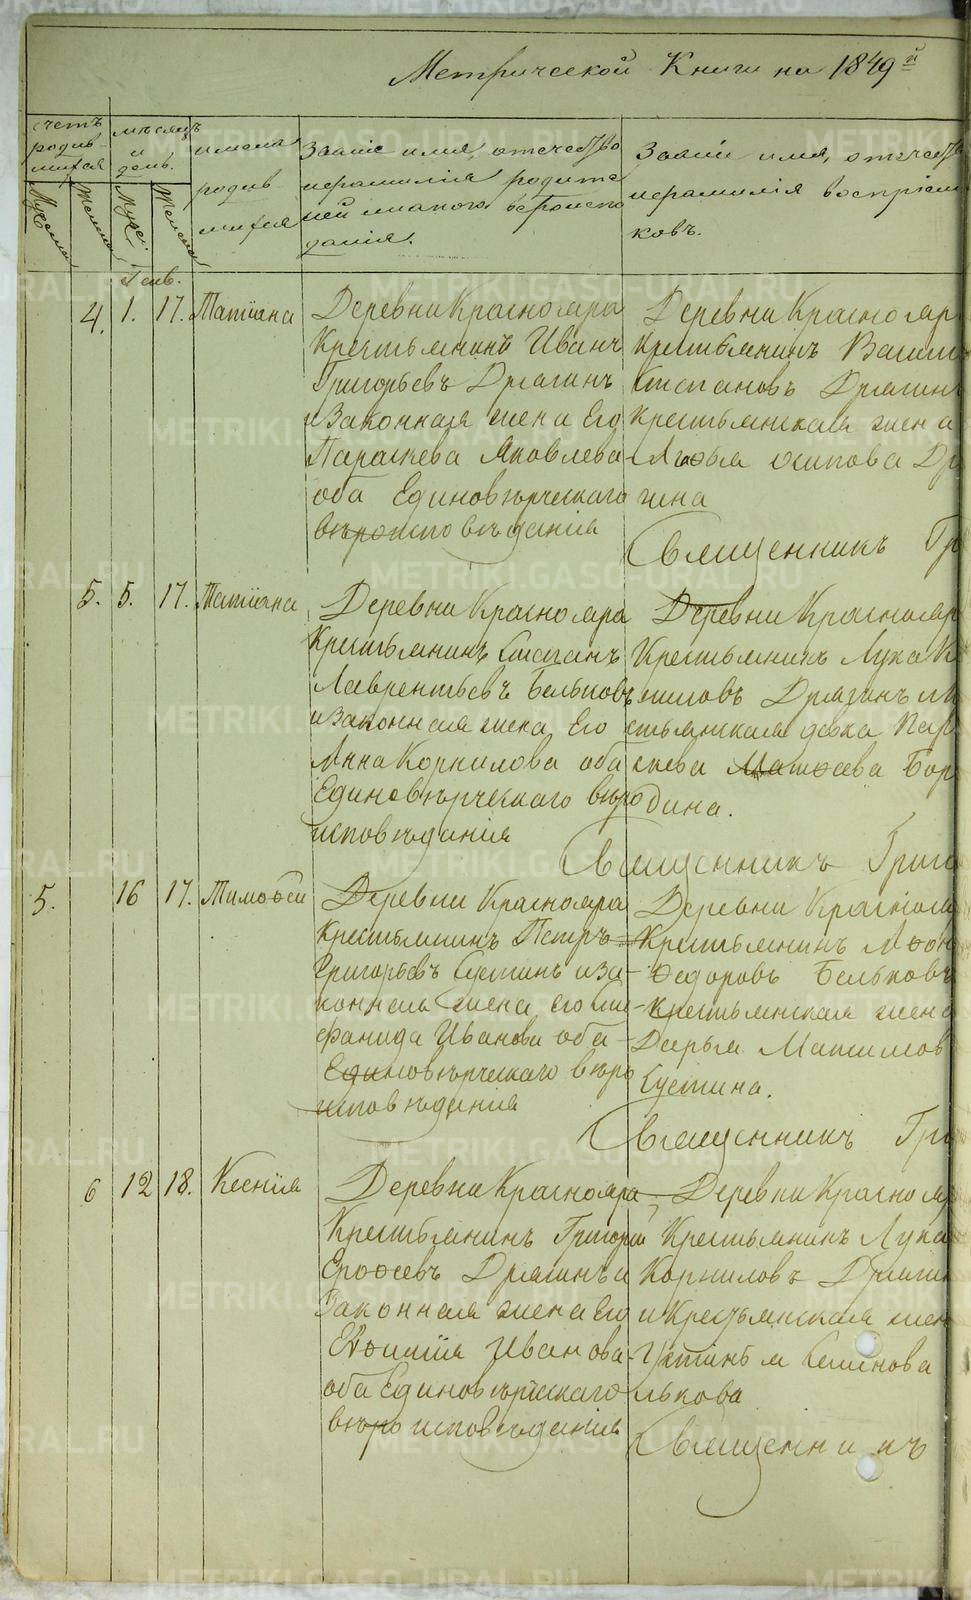 Метрической Книги на 1849й
счетъ родив-шихся
Мужеска
Женска
мѣсяцъ и день.
Имена родив шихся
Звание имя, отечество
и фамилiя родите
лей и какого вѣроиспо
данiя.
Званiе имя, отечеств
и фамилiя воспрiем
ковъ.
Генв.
4. 1. 17. Татiана
Деревни Краснояра
Крестьянинъ Иванъ
Григорьевъ Дрягинъ
и Законная жена Его
Параскева Яковлева
оба Единовѣрческаго
вѣроисповѣданiя
Деревни Краснояр
Крестьянинъ Васил
Степановъ Дрягин
Крестьянская жена
осипова Др
гина
Священникъ Гр
5. 5. 17. Татiана
Деревни Краснояра
Крестьянинъ Степанъ
Лаврентьевъ Бельковъ
и Законная жена Его
Анна Корнилова оба
Единовѣрческаго вѣро
исповѣданiя
Деревни Краснояр
Крестьянинъ Лука К
ниловъ Дрягинъ и К
стьянская девка Пар
скева Матѳеева Бор
дина.
Священникъ Григо
5. 16 17. Тимоѳей
Деревни Краснояра
Крестьянинъ Петръ
Григорьевъ Сустинъ и За-
конная жена его Сте-
фанида Иванова оба
Единовѣрческаго вѣро
исповѣданiя
Деревни Краснояр
Крестьянинъ Леон
Ѳедоровъ Бельковъ
Крестьянская жена
Дарья Максимов
Сустина.
Священникъ Гри
6 12 18. Ксенiя
Деревни Краснояра
Крестьянинъ Григорiй
Ероѳеевъ Дрягинъ и
Законная жена Его
Евѳимiя Иванова
оба Единовѣрческаго
вѣро исповѣданiя
Деревни Краснояр
Крестьянинъ Лука
Корниловъ Дрягин
и Крестьянская жен
Устинья Семенова
лькова
Священникъ
METRIKI.GASO-URAL.RU